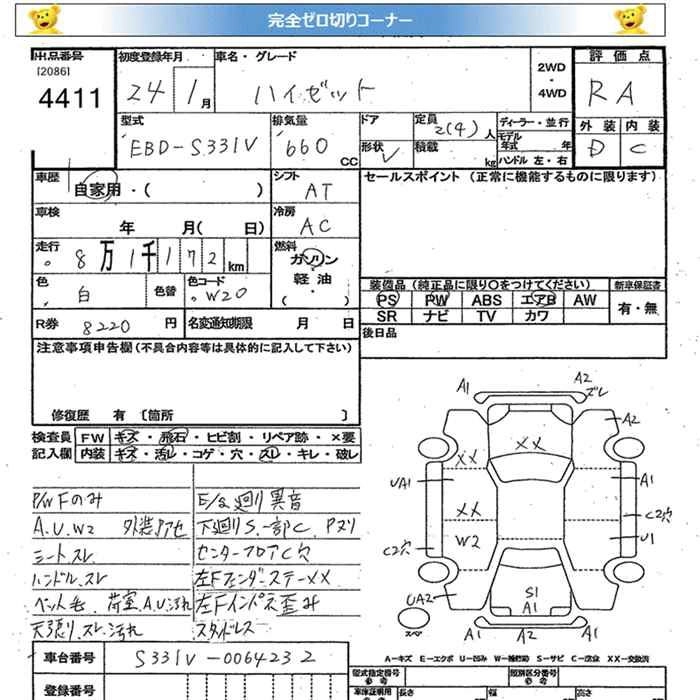 完全ゼロ切りコーナー
出品番号 初度登録年月 車名・グレード 2WD・4WD 評価点
[2086]
4411 24年1月 ハイゼット RA
外装 内装
D C
型式 排気量 ドア 定員 2(4)人 ディーラー・並行
EBD-S331V 660CC 形状 V 積載 kg モデル年式 年
ハンドル 左・右
車歴 自家用・( ) シフト AT セールスポイント (正常に機能するものに限ります)
車検 年 月( 日) 冷房 AC
走行 8万1千172km 燃料 ガソリン・軽油・( )
色 白 色替 色コード W20
装備品(純正品に限り〇をつけてください) 新車保証書
PS PW ABS エアB AW 有・無
SR ナビ TV カワ
R券 8220円 名変通知期限 月 日 後日品
注意事項申告欄(不具合内容等は具体的に記入して下さい)
修復歴 有 [箇所 ]
検査員 FW キズ・飛石・ヒビ割・リペア跡・×要
記入欄 内装 キズ・汚レ・コゲ・穴・スレ・キレ・破レ
P/W Fのみ E/g廻り異音
A.U.W2 外装アセ 下廻りS.一部C Pヌリ
シートスレ センターフロアC穴
ハンドルスレ 左Fフェンダーステー××
ペット毛.荷室A.U汚れ 左Fインパネ歪み
天張り.スレ.汚れ スタッドレス
A1 A2 ズレ
A2
××
××
UA1 A1
××
C2穴
W2 U1
C2穴
UA2
S1
A1
スペア
A1 A2 A1
A-キズ E-エクボ U-凹み W-補修跡 S-サビ C-腐食 XX-交換済
車台番号 S331V-0064232
登録番号
型式指定番号 類別区分番号
車体証明用参考 長さ 幅 高さ